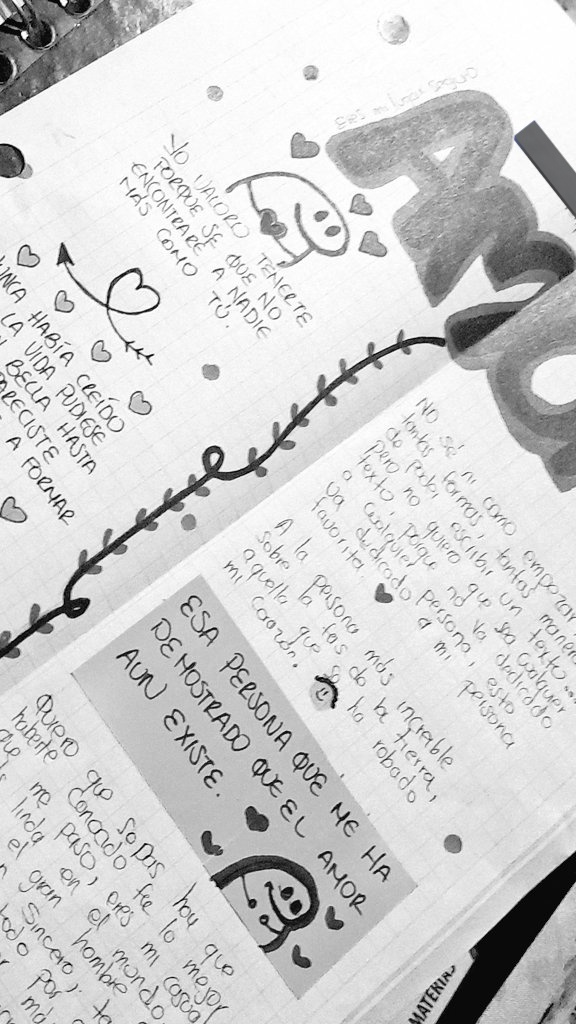 Eres mi lugar seguro
AMO
YO VALORO TENERTE
PORQUE SE QUE NO
ENCONTRARE A NADIE
MÁS COMO TÚ.
NUNCA HABÍA CREÍDO
LA VIDA PUDIESE
BELLA HASTA
APARECISTE
A FORMAR
No sé ni como empezar
tantas formas, tantas
de poder escribir un texto...
pero no quiero que sea cualquier
texto, porque no va dedicado
a cualquier persona, esto
va dedicado a mi persona
favorita.
A la persona más increíble
sobre la faz de la tierra,
aquella que se ha robado
mi corazón.
ESA PERSONA QUE ME HA
DEMOSTRADO QUE EL AMOR
AUN EXISTE.
Quiero que sepas hoy que
haberte conocido fue lo mejor
que me paso, eres mi casual
linda en el mundo
el gran hombre
sincero,
todo por
MATERIA